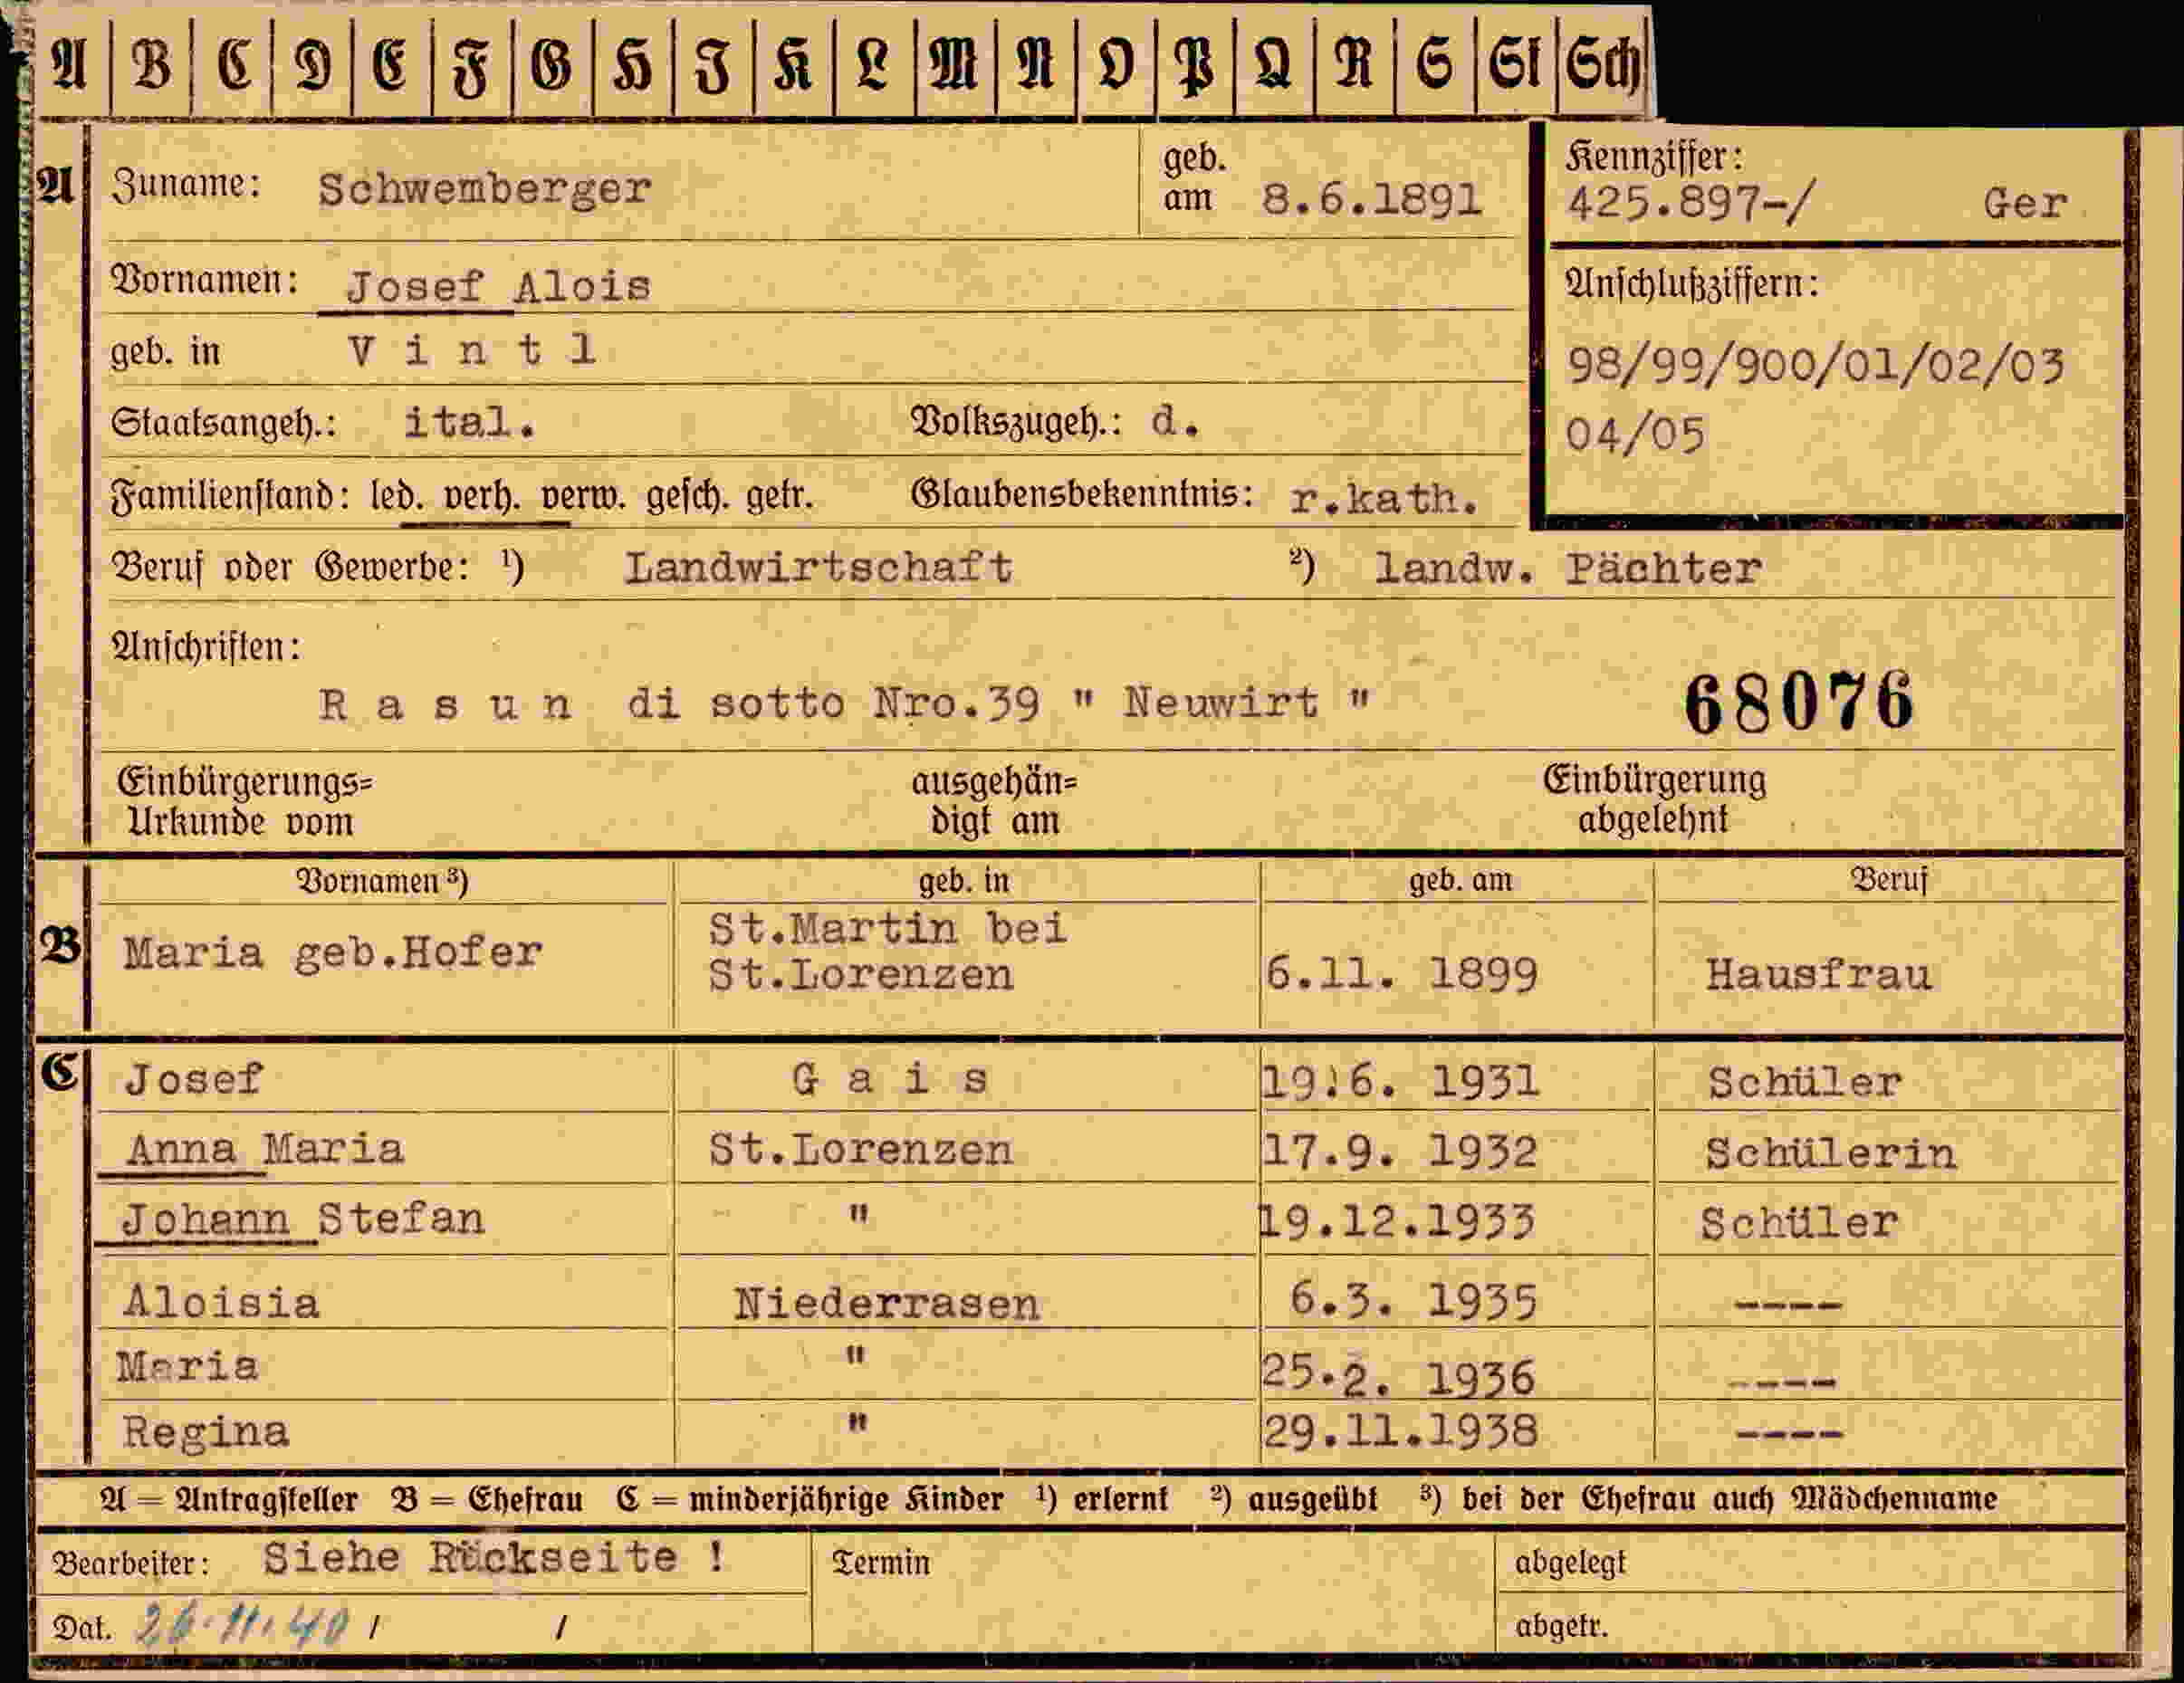 A B C D E F G H I K L M N O P Q R S St Sch
A Zuname: Schwemberger geb. am 8.6.1891
Kennziffer:
425.897-/ Ger
Vornamen: Josef Alois
Anschlußziffern:
geb. in Vintl
98/99/900/01/02/03
Staatsangeh.: ital. Volkszugeh.: d.
04/05
Familienstand: led. verh. verw. gesch. getr. Glaubensbekenntnis: r.kath.
Beruf oder Gewerbe: ¹) Landwirtschaft ²) landw. Pächter
Anschriften:
Rasun di sotto Nro.39 " Neuwirt " 68076
Einbürgerungs= ausgehän= Einbürgerung
Urkunde vom digt am abgelehnt
Vornamen ³) geb. in geb. am Beruf
B Maria geb.Hofer St.Martin bei
St.Lorenzen 6.11. 1899 Hausfrau
C Josef Gais 19.6. 1931 Schüler
Anna Maria St.Lorenzen 17.9. 1932 Schülerin
Johann Stefan " 19.12.1933 Schüler
Aloisia Niederrasen 6.3. 1935 ----
Maria " 25.2. 1936 ----
Regina " 29.11.1938 ----
A = Antragsteller B = Ehefrau C = minderjährige Kinder ¹) erlernt ²) ausgeübt ³) bei der Ehefrau auch Mädchenname
Bearbeiter: Siehe Rückseite ! Termin abgelegt
Dat. 26.11.40 / / abgetr.